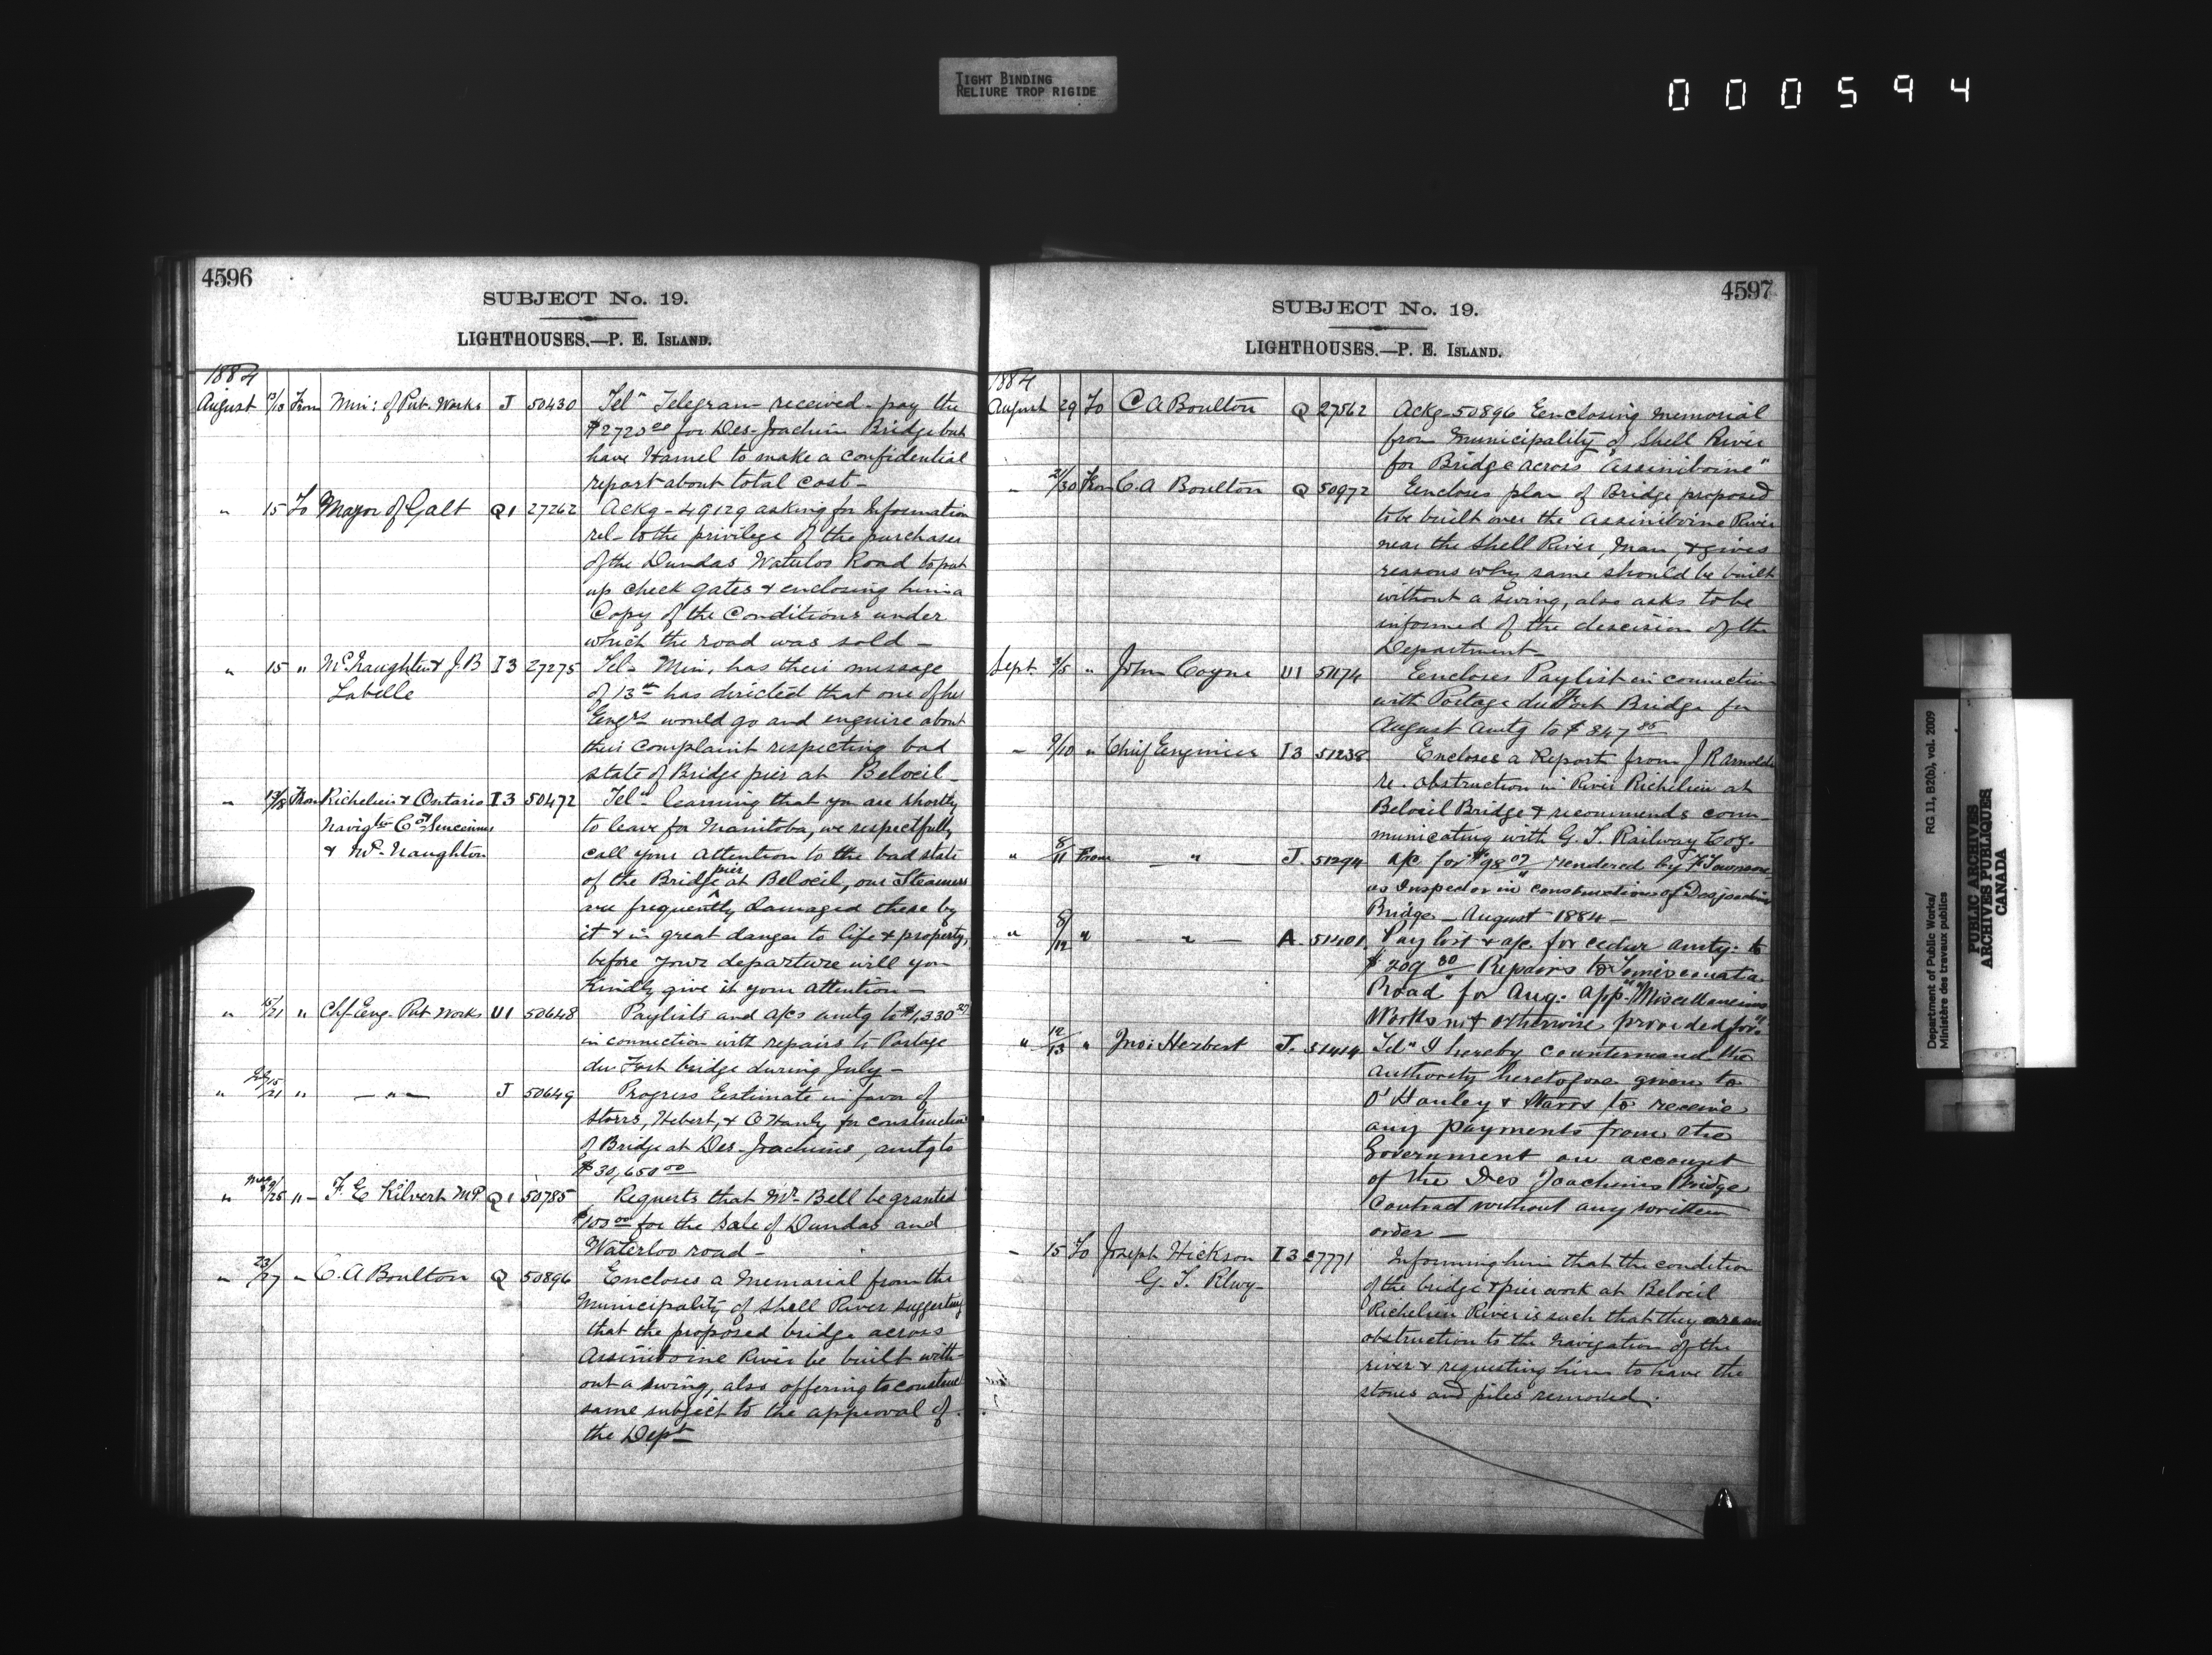 TIGHT BINDING
RELIURE TROP RIGIDE
000594
4596
SUBJECT No. 19.
LIGHTHOUSES.—P. E. ISLAND.
1884
August 13/13 From Min: of Pub. Works J 50430 Telm Telegram received pay the
$2725.00 for Des-Joachim Bridge but
have Hamel to make a confidential
report about total cost-
" 15 To Mayor of Galt Q1 27262 Ackg-49129 asking for Information
rel- to the privilege of the purchaser
of the Dundas Waterloo Road to put
up check gates & enclosing him a
Copy of the Conditions under
which the road was sold-
" 15 " McNaughton & J.B I3 27275 Tel- Min. has their message
Labelle of 13th has directed that one of his
Engrs would go and enquire about
their complaint respecting bad
state of Bridge pier at Beloeil-
" 13/18 From Richelieu & Ontario I3 50472 Telm learning that you are shortly
Navigtn Coy to leave for Manitoba, we respectfully
& McNaughton call your attention to the bad state
of the Bridge pier at Beloeil, our Steamers
are frequently damaged there by
it & in great danger to life & property,
before your departure will you
Kindly give it your attention-
" 15/21 " Chf Eng. Pub Works U1 50648 Paylists and a/cs amtg to $1,330
in connection with repairs to Portage
du Fort bridge during July-
" 15/21 " — " — J 50649 Progress Estimate in favor of
Storrs, Hebert, & O'Hanly for construction
of Bridge at Des-Joachims, amtg to
$30,650.00
" /25 " F. E Kilvert M.P. Q1 50785 Requests that Mr. Bell be granted
$100.00 for the sale of Dundas and
Waterloo road-
" 23/27 " C. A Boulton Q 50896 Encloses a Memorial from the
Municipality of Shell River suggesting
that the proposed bridge across
Assiniboine River be built with-
out a swing, also offering to construct
same subject to the approval of
the Dept
4597
SUBJECT No. 19.
LIGHTHOUSES.—P. E. ISLAND.
1884
August 29 To C A Boulton Q 27562 Ackg-50896 Eenclosing memorial
from Municipality of Shell River
for Bridge across "Assiniboine"
" 21/30 From C. A Boulton Q 50972 Eencloses plan of Bridge proposed
to be built over the Assiniboine River
near the Shell River, Man, & gives
reasons why same should be built
without a swing, also asks to be
informed of the descision of the
Department-
Sept. 3/5 " John Coyne U1 51174 Eencloses Paylist in connection
with Portage du Fort Bridge for
August amtg to $847.85
" 9/10 " Chief Engineer I3 51238 Encloses a Report from J R Arnoldi
re. obstruction in River Richelieu at
Beloeil Bridge & recommends com-
municating with G. T. Railway Coy.
" 8/11 From — " — J. 51294 a/c for $98.07 rendered by F.
as Inspector in constructions of Desjoachim
Bridge- August 1884-
" 8/12 " — " — A. 51401 Pay list & a/c for cedar amtg: to
$209.80 Repairs to "Temiscouata
Road" for Aug. App. "Miscellaneous
Works not otherwise provided for."
" 12/13 " Jno: Herbert J. 51414 Telm I hereby countermand the
authority heretofore given to
O'Hanley & Storrs to receive
any payments from the
Government on account
of the Des Joachims Bridge
Contract without any written
order-
" 15 To Joseph Hickson I3 27771 Informing him that the condition
G. T. Rlwy- of the bridge & pier work at Beloeil
Richelieu River is such that they are an
obstruction to the navigation of the
river & requesting him to have the
stones and piles removed.
Department of Public Works/ RG 11, B2(b), vol. 2009
Ministère des travaux publics
PUBLIC ARCHIVES
ARCHIVES PUBLIQUES
CANADA